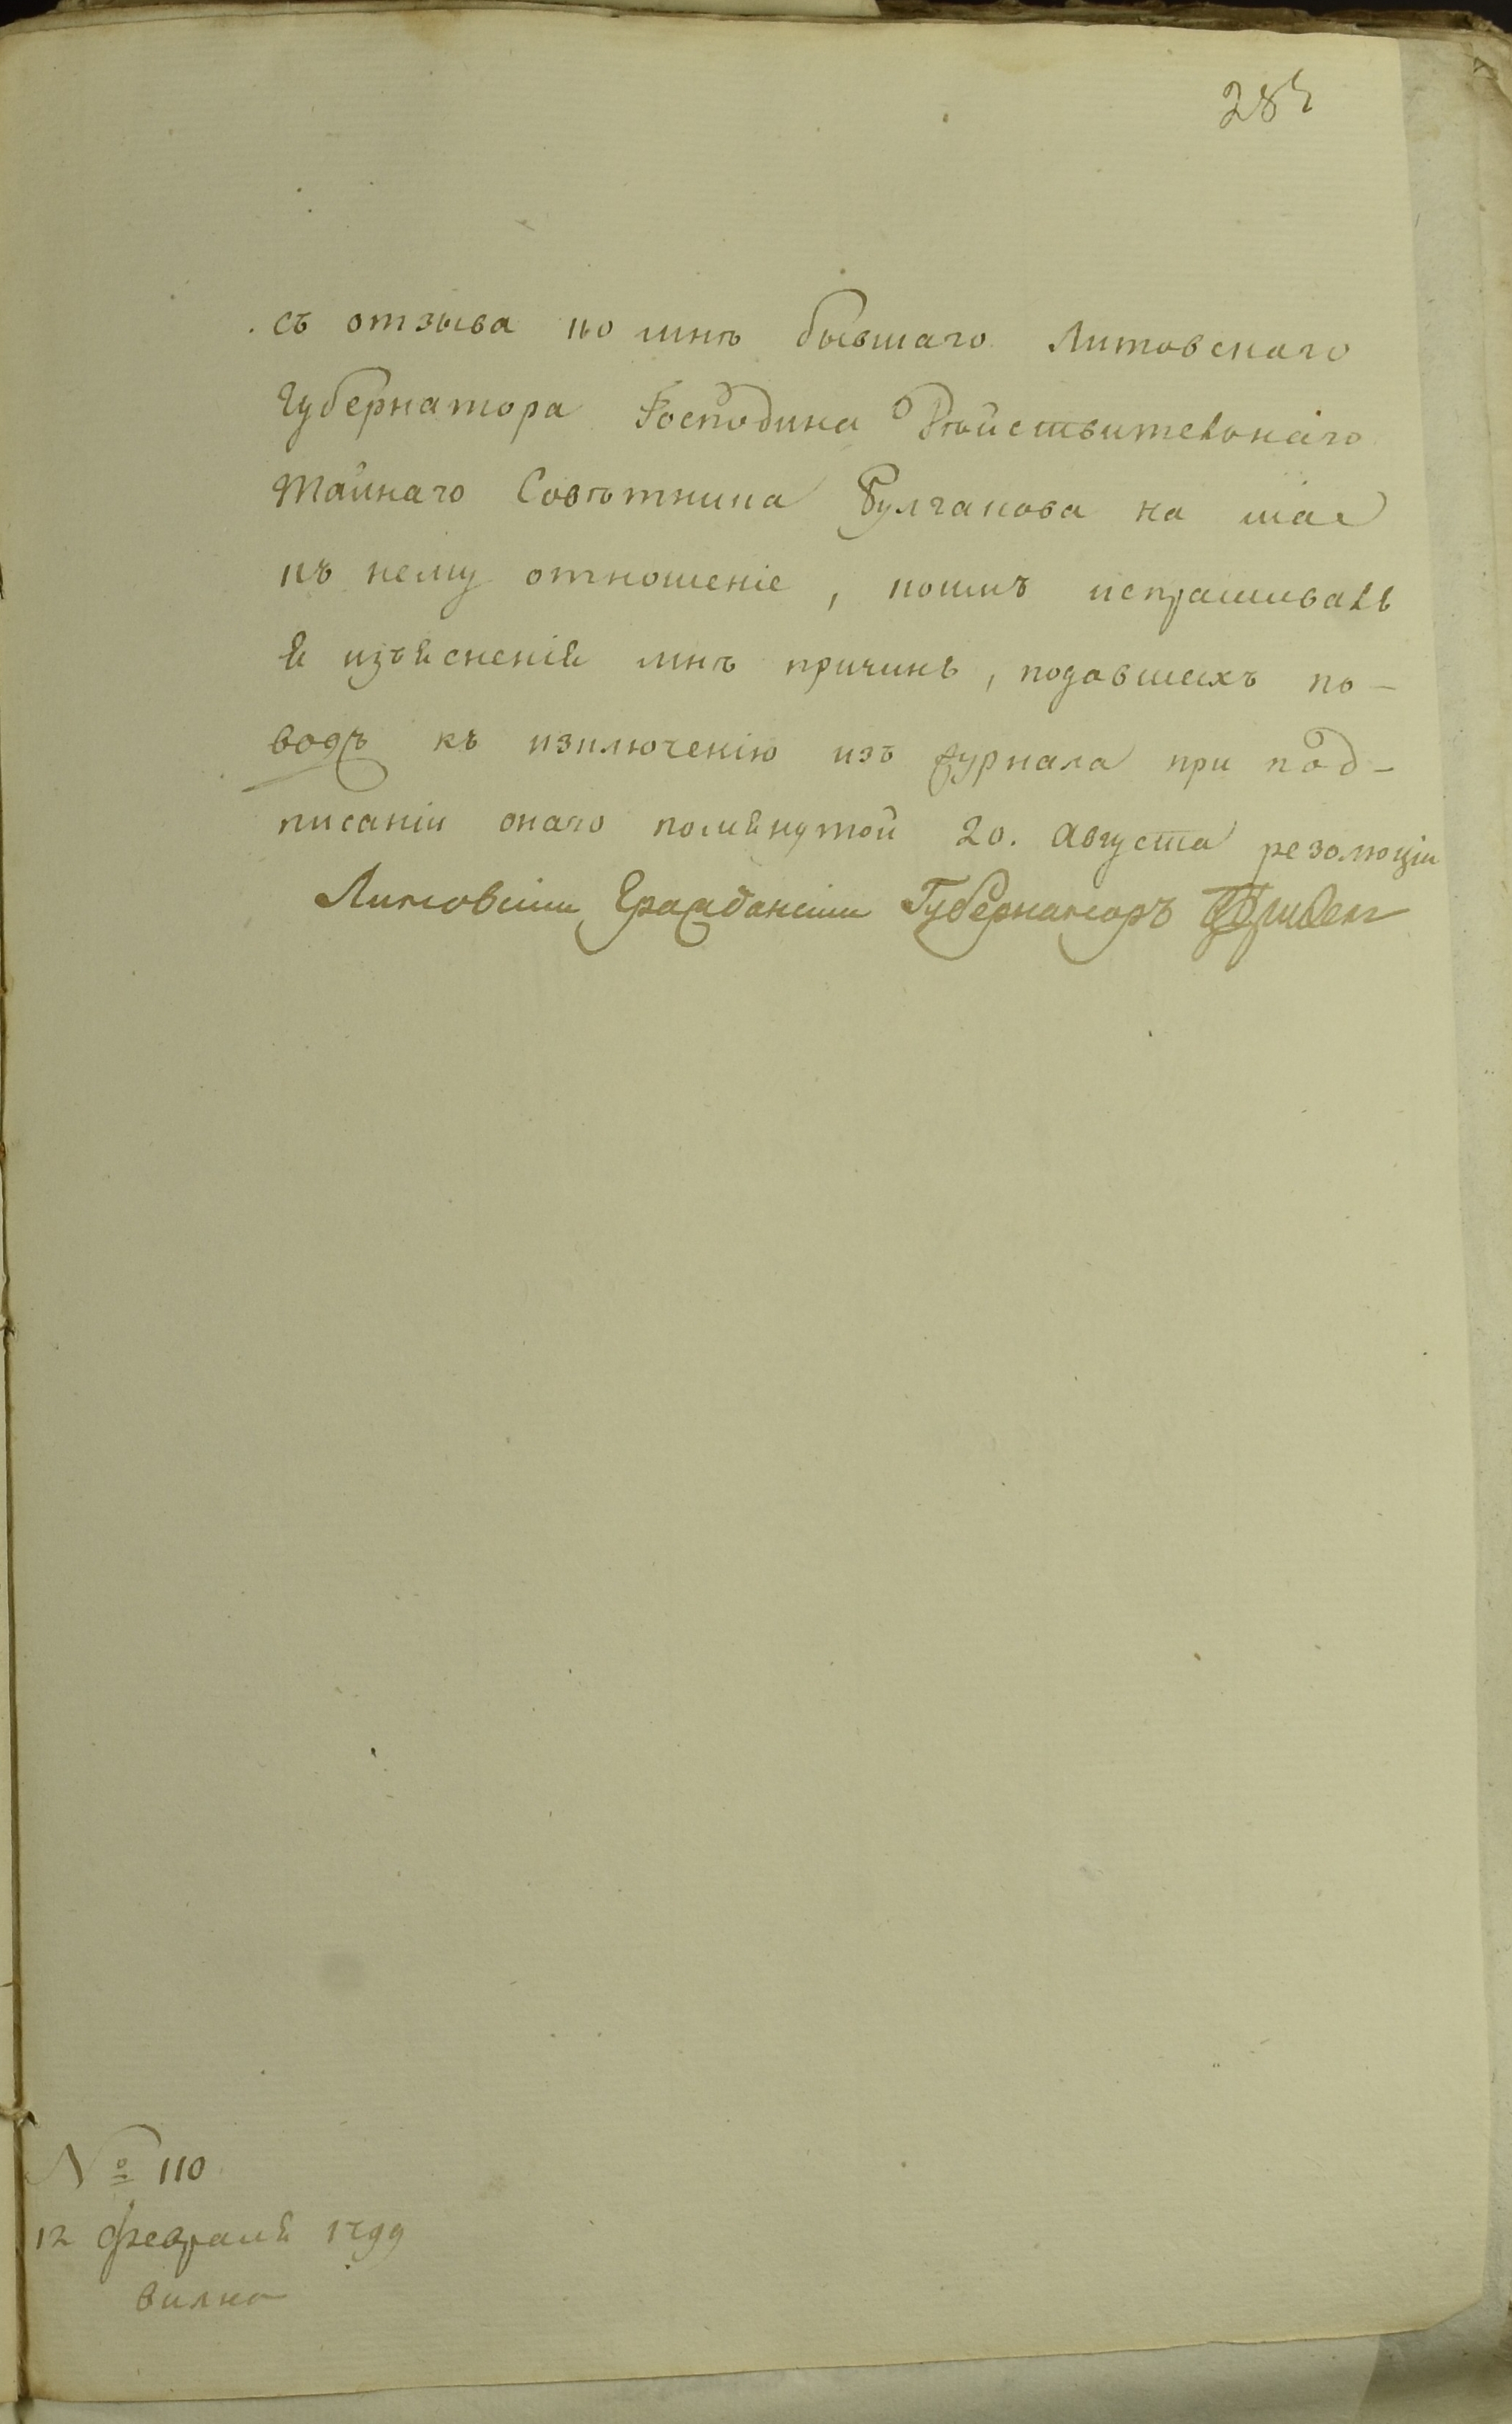 285
съ отзыва ко мнѣ бывшаго Литовскаго
Губернатора Господина Дѣйствительнаго
Тайнаго Совѣтника Булгакова на мое
къ нему отношеніе, коимъ испрашивалъ
я изъясненія мнѣ причинъ, подавшихъ по-
водъ къ изключенію изъ журнала при под-
писаніи онаго помянутой 20. Августа резолюціи
Литовскіи Гражданскіи Губернаторъ Фризел
№ 110
12 февраля 1799
вилна